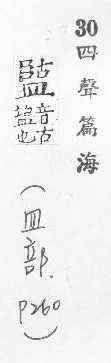 30 四聲篇海
盬 音古
塩也
(皿部. P260)